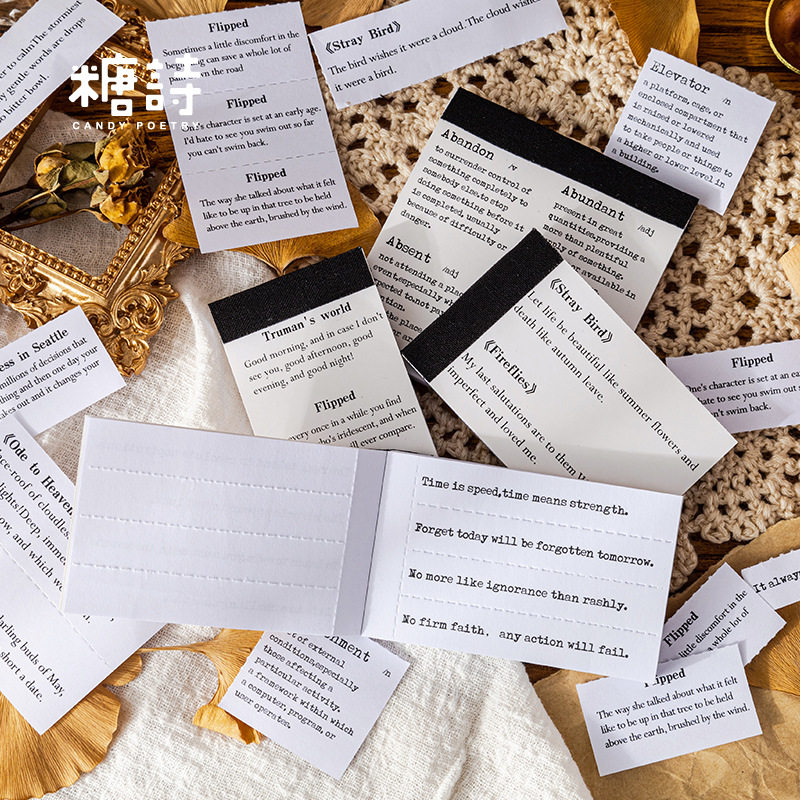 er to calm The stormiest
y gentle words are drops
o bitter bowl.
糖詩
CANDY POETRY
Flipped
Sometimes a little discomfort in the
beginning can save a whole lot of
pain down the road
Flipped
One's character is set at an early age.
I'd hate to see you swim out so far
you can't swim back.
Flipped
The way she talked about what it felt
like to be up in that tree to be held
above the earth, brushed by the wind.
《Stray Bird》
The bird wishes it were a cloud. The cloud wishes
it were a bird.
Elevator /n
a platform, cage, or
enclosed compartment that
is raised or lowered
mechanically and used
to take people or things to
a higher or lower level in
a building.
Abandon /v
to surrender control of
something completely to
somebody else.to stop
doing something before it
is completed, usually
because of difficulty or
danger.
Abundant /adj
present in great
quantities.providing a
more than plentiful
supply of something.
or available in
Absent /adj
not attending a place
event,especially wh
expected to.not pay
the place
Truman's world
Good morning, and in case I don't
see you, good afternoon, good
evening, and good night!
Flipped
every once in a while you find
who's iridescent, and when
will ever compare.
《Stray Bird》
Let life be beautiful like summer flowers and
death like autumn leave.
《Fireflies》
My last salutations are to them
imperfect and loved me.
ess in Seattle
millions of decisions that
thing and then one day your
akes out and it changes your
Flipped
One's character is set at an ea
I'd hate to see you swim out
can't swim back.
《Ode to Heaven
ce-roof of cloudles
lights!Deep, imme
ow, and which wo
arling buds of May,
short a date
Time is speed,time means strength.
Forget today will be forgotten tomorrow.
No more like ignorance than rashly.
No firm faith, any action will fail.
onment /n
of external
conditions,especially
those affecting a
particular activity.
a framework within which
a computer, program,or
user operates.
Flipped
little discomfort in the
a whole lot of
It always
Flipped
The way she talked about what it felt
like to be up in that tree to be held
above the earth, brushed by the wind.